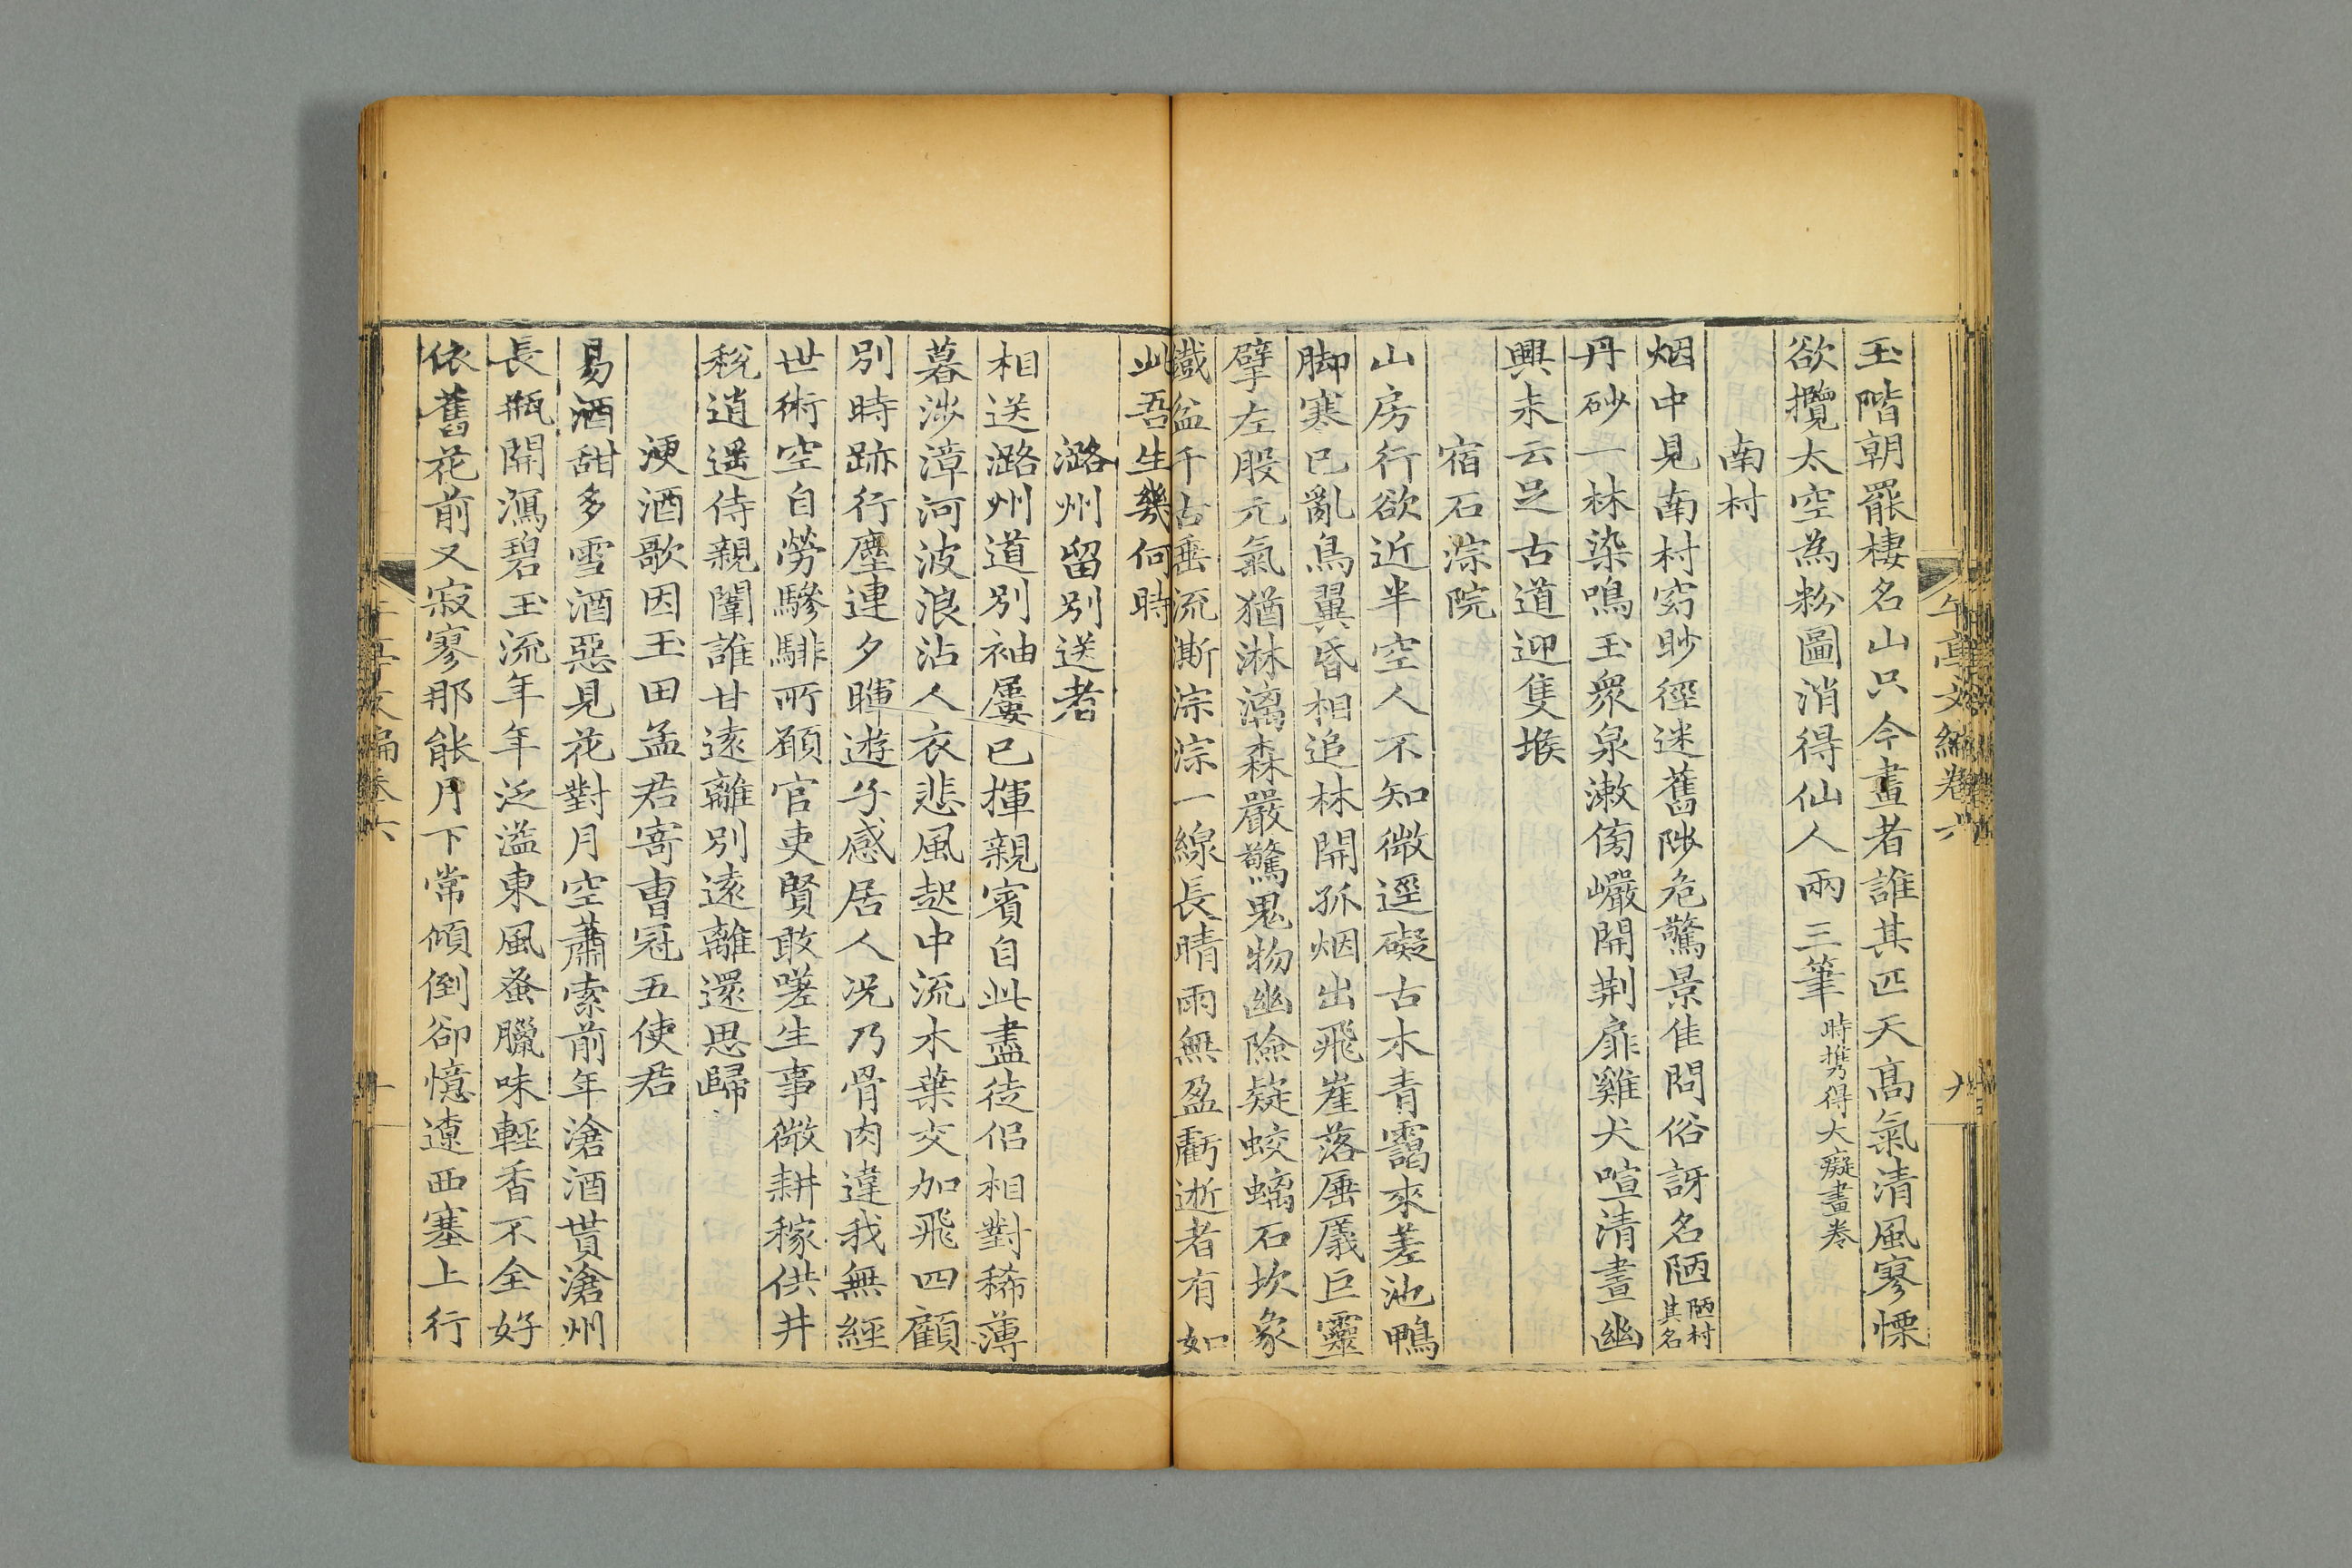 午亭文編卷六
九
玉階朝罷棲名山只今畫者誰其匹天高氣清風寥慄
欲攬太空為粉圖消得仙人兩三筆時攜得大癡畫卷
南村
烟中見南村窈眇徑迷舊陟危驚景佳問俗訝名陋陋村其名
丹砂一林染鳴玉衆泉漱傍巗開荆扉雞犬喧清晝幽
興未云足古道迎隻堠
宿石淙院
山房行欲近半空人不知微逕礙古木青靄來差池鴨
脚寒已亂鳥翼昏相追林開孤烟出飛崖落厜㕒巨靈
擘左股元氣猶淋漓森嚴驚鬼物幽險疑蛟螭石坎象
鐵盆千古垂流澌淙淙一線長晴雨無盈虧逝者有如
此吾生幾何時
潞州留別送者
相送潞州道別袖屢已揮親賓自此盡徒侶相對稀薄
暮涉漳河波浪沾人衣悲風起中流木葉交加飛四顧
別時跡行塵連夕暉遊子感居人况乃骨肉違我無經
世術空自勞驂騑所願官吏賢敢嗟生事微耕稼供井
稅逍遥侍親闈誰甘遠離別遠離還思歸
浭酒歌因玉田孟君寄曹冠五使君
易酒甜多雪酒惡見花對月空蕭索前年滄酒貰滄州
長瓶開瀉碧玉流年年泛溢東風蚤臘味輕香不全好
依舊花前又寂寥那能月下常傾倒卻憶遼西塞上行
午亭文編卷六
十